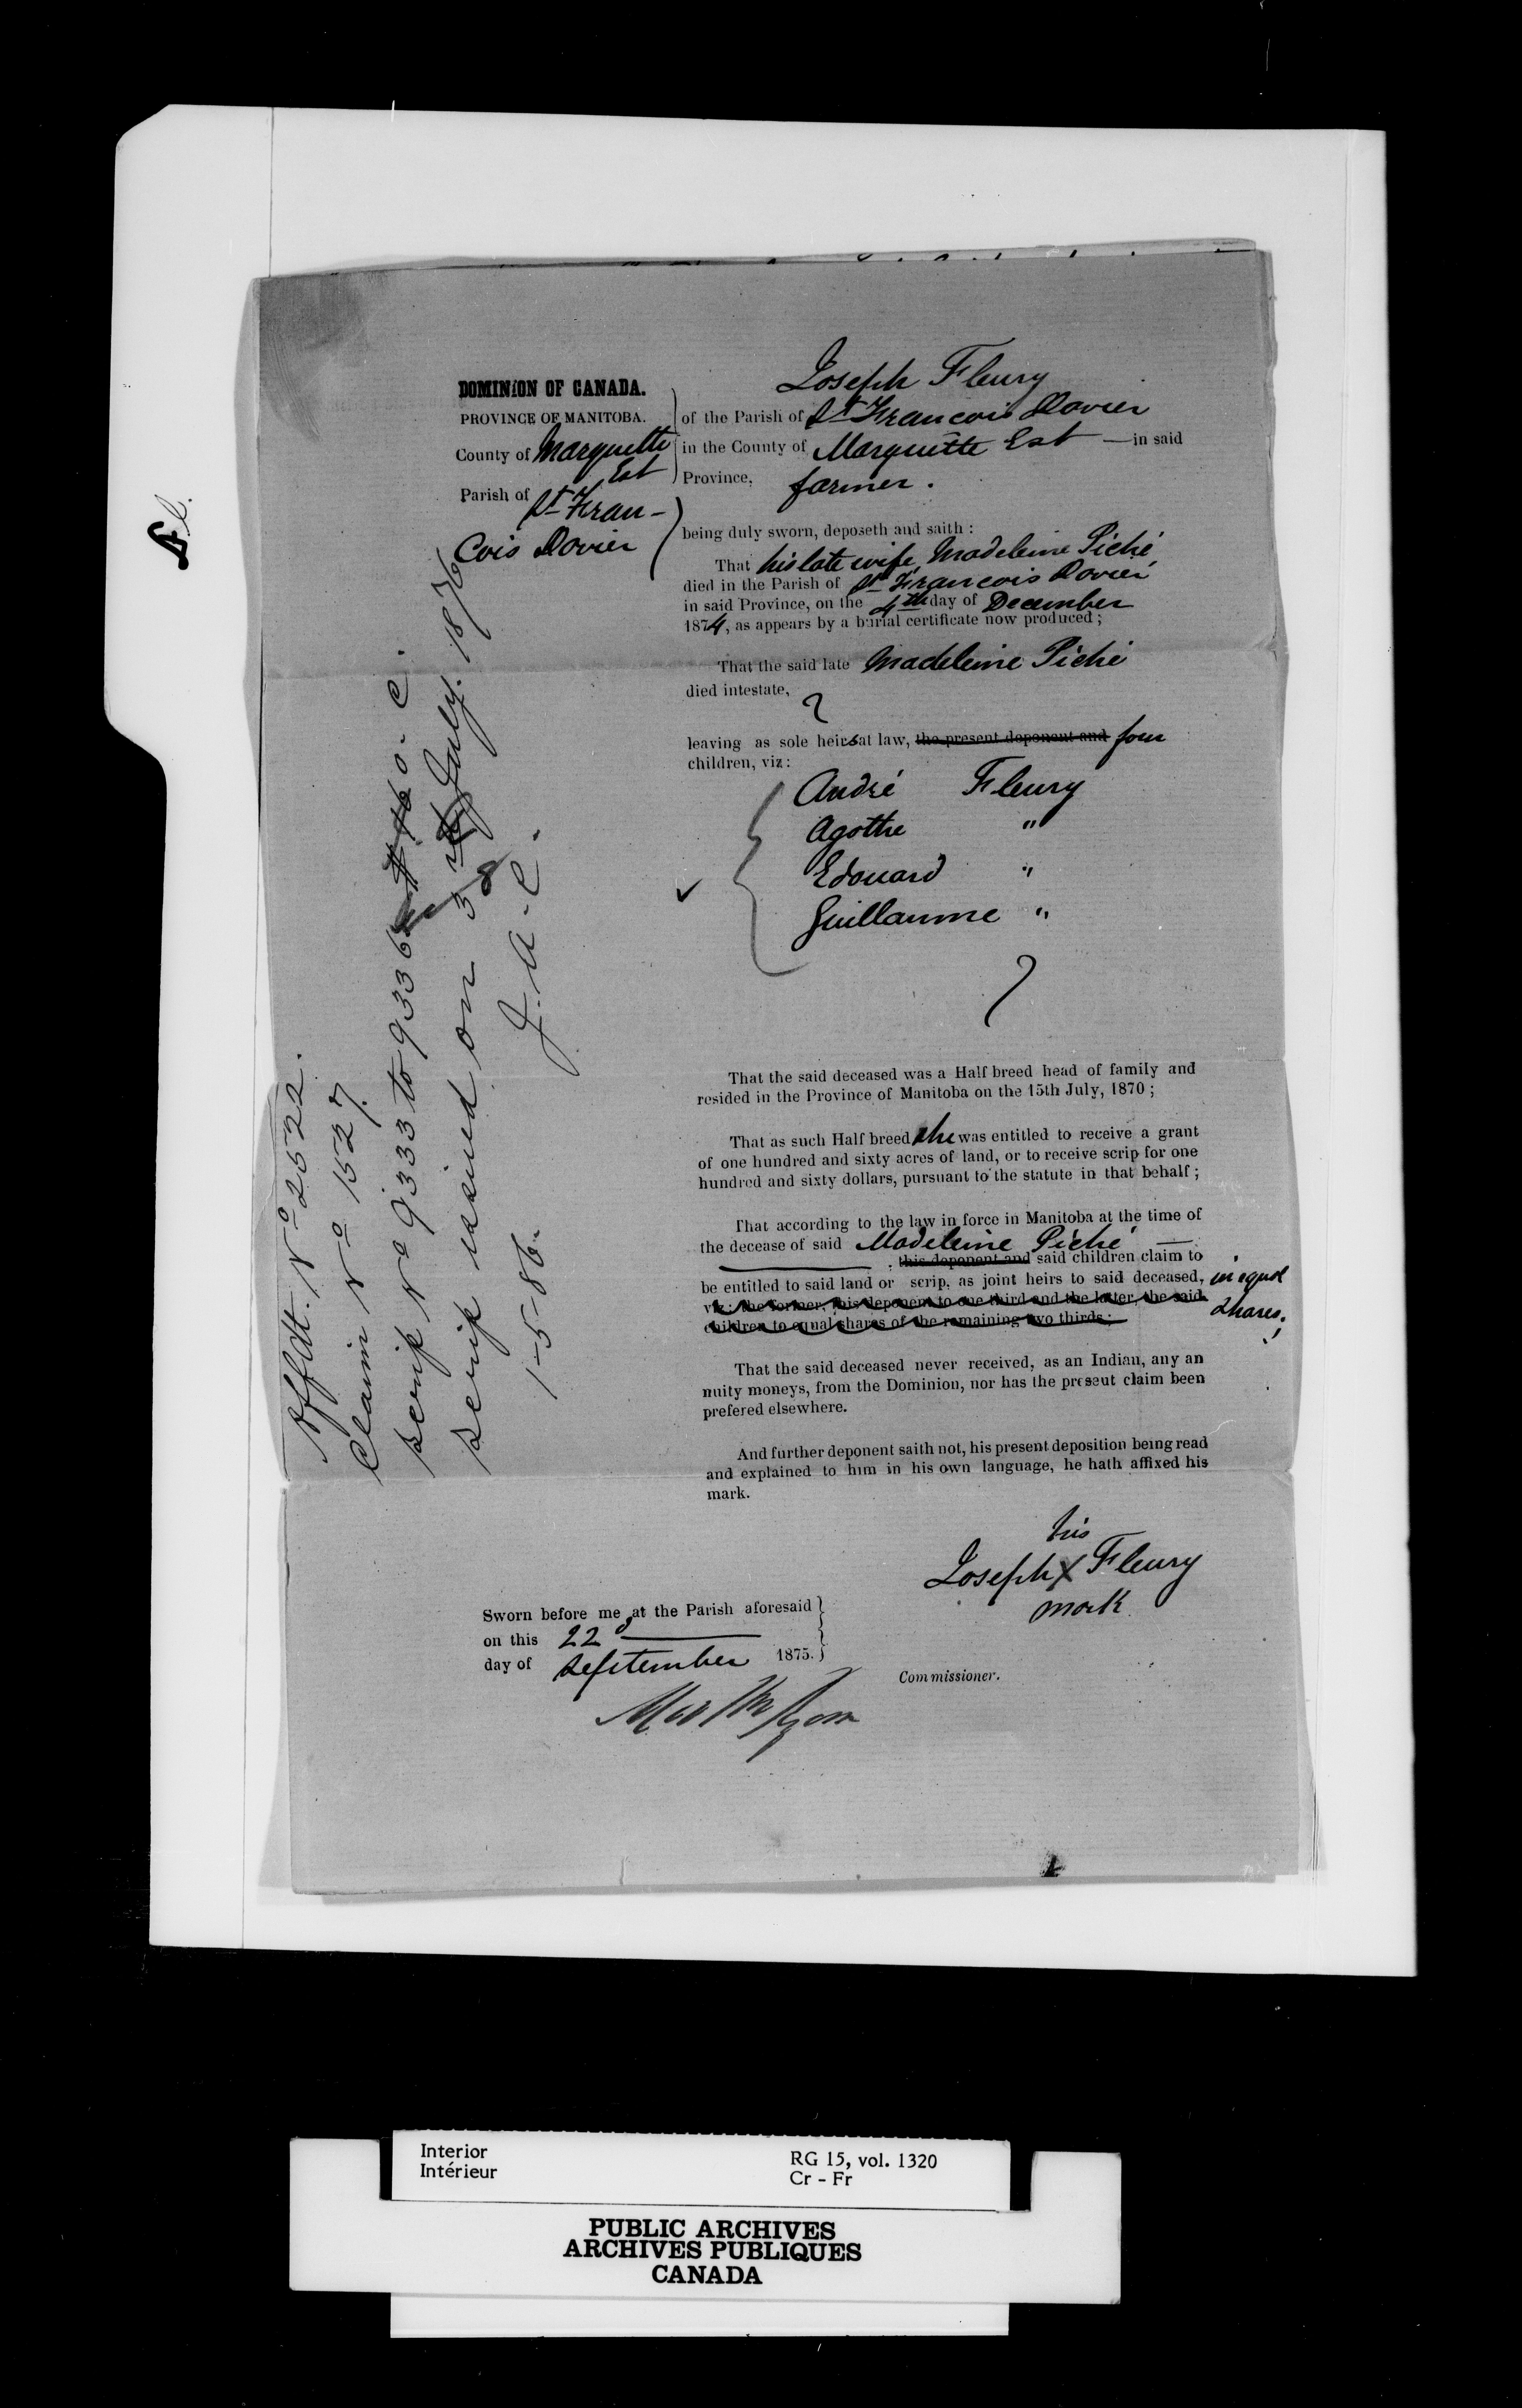 DOMINION OF CANADA.
PROVINCE OF MANITOBA.
County of Marquette
Est
Parish of St Fran-
cois Xavier
Joseph Fleury
of the Parish of St Francois Xavier
in the County of Marquette Est — in said
Province, farmer.
being duly sworn, deposeth and saith :
That his late wife, Madeleine Piché
died in the Parish of St Francois Xavier
in said Province, on the 4th day of December
1874, as appears by a burial certificate now produced ;
That the said late Madeleine Piché
died intestate,
leaving as sole heirs at law, the present deponent and four
children, viz :
André Fleury
Agathe "
Edouard "
Guillaume "
That the said deceased was a Half breed head of family and
resided in the Province of Manitoba on the 15th July, 1870 ;
That as such Half breed she was entitled to receive a grant
of one hundred and sixty acres of land, or to receive scrip for one
hundred and sixty dollars, pursuant to the statute in that behalf ;
That according to the law in force in Manitoba at the time of
the decease of said Madeleine Piché —
this deponent and said children claim to
be entitled to said land or scrip, as joint heirs to said deceased, in equal
viz : the former, this deponent to one third and the latter, the said shares ;
children to equal shares of the remaining two thirds ;
That the said deceased never received, as an Indian, any an
nuity moneys, from the Dominion, nor has the present claim been
prefered elsewhere.
And further deponent saith not, his present deposition being read
and explained to him in his own language, he hath affixed his
mark.
his
Joseph X Fleury
mark
Sworn before me, at the Parish aforesaid
on this 22d
day of September 1875.
Commissioner.
Affdt. No 2522.
Claim No 1527.
Scrip No 9333 to 9336 $160. C.
Scrip issued on 3 July. 1876
1-5-86. J. A. C.
Interior
Intérieur
RG 15, vol. 1320
Cr - Fr
PUBLIC ARCHIVES
ARCHIVES PUBLIQUES
CANADA